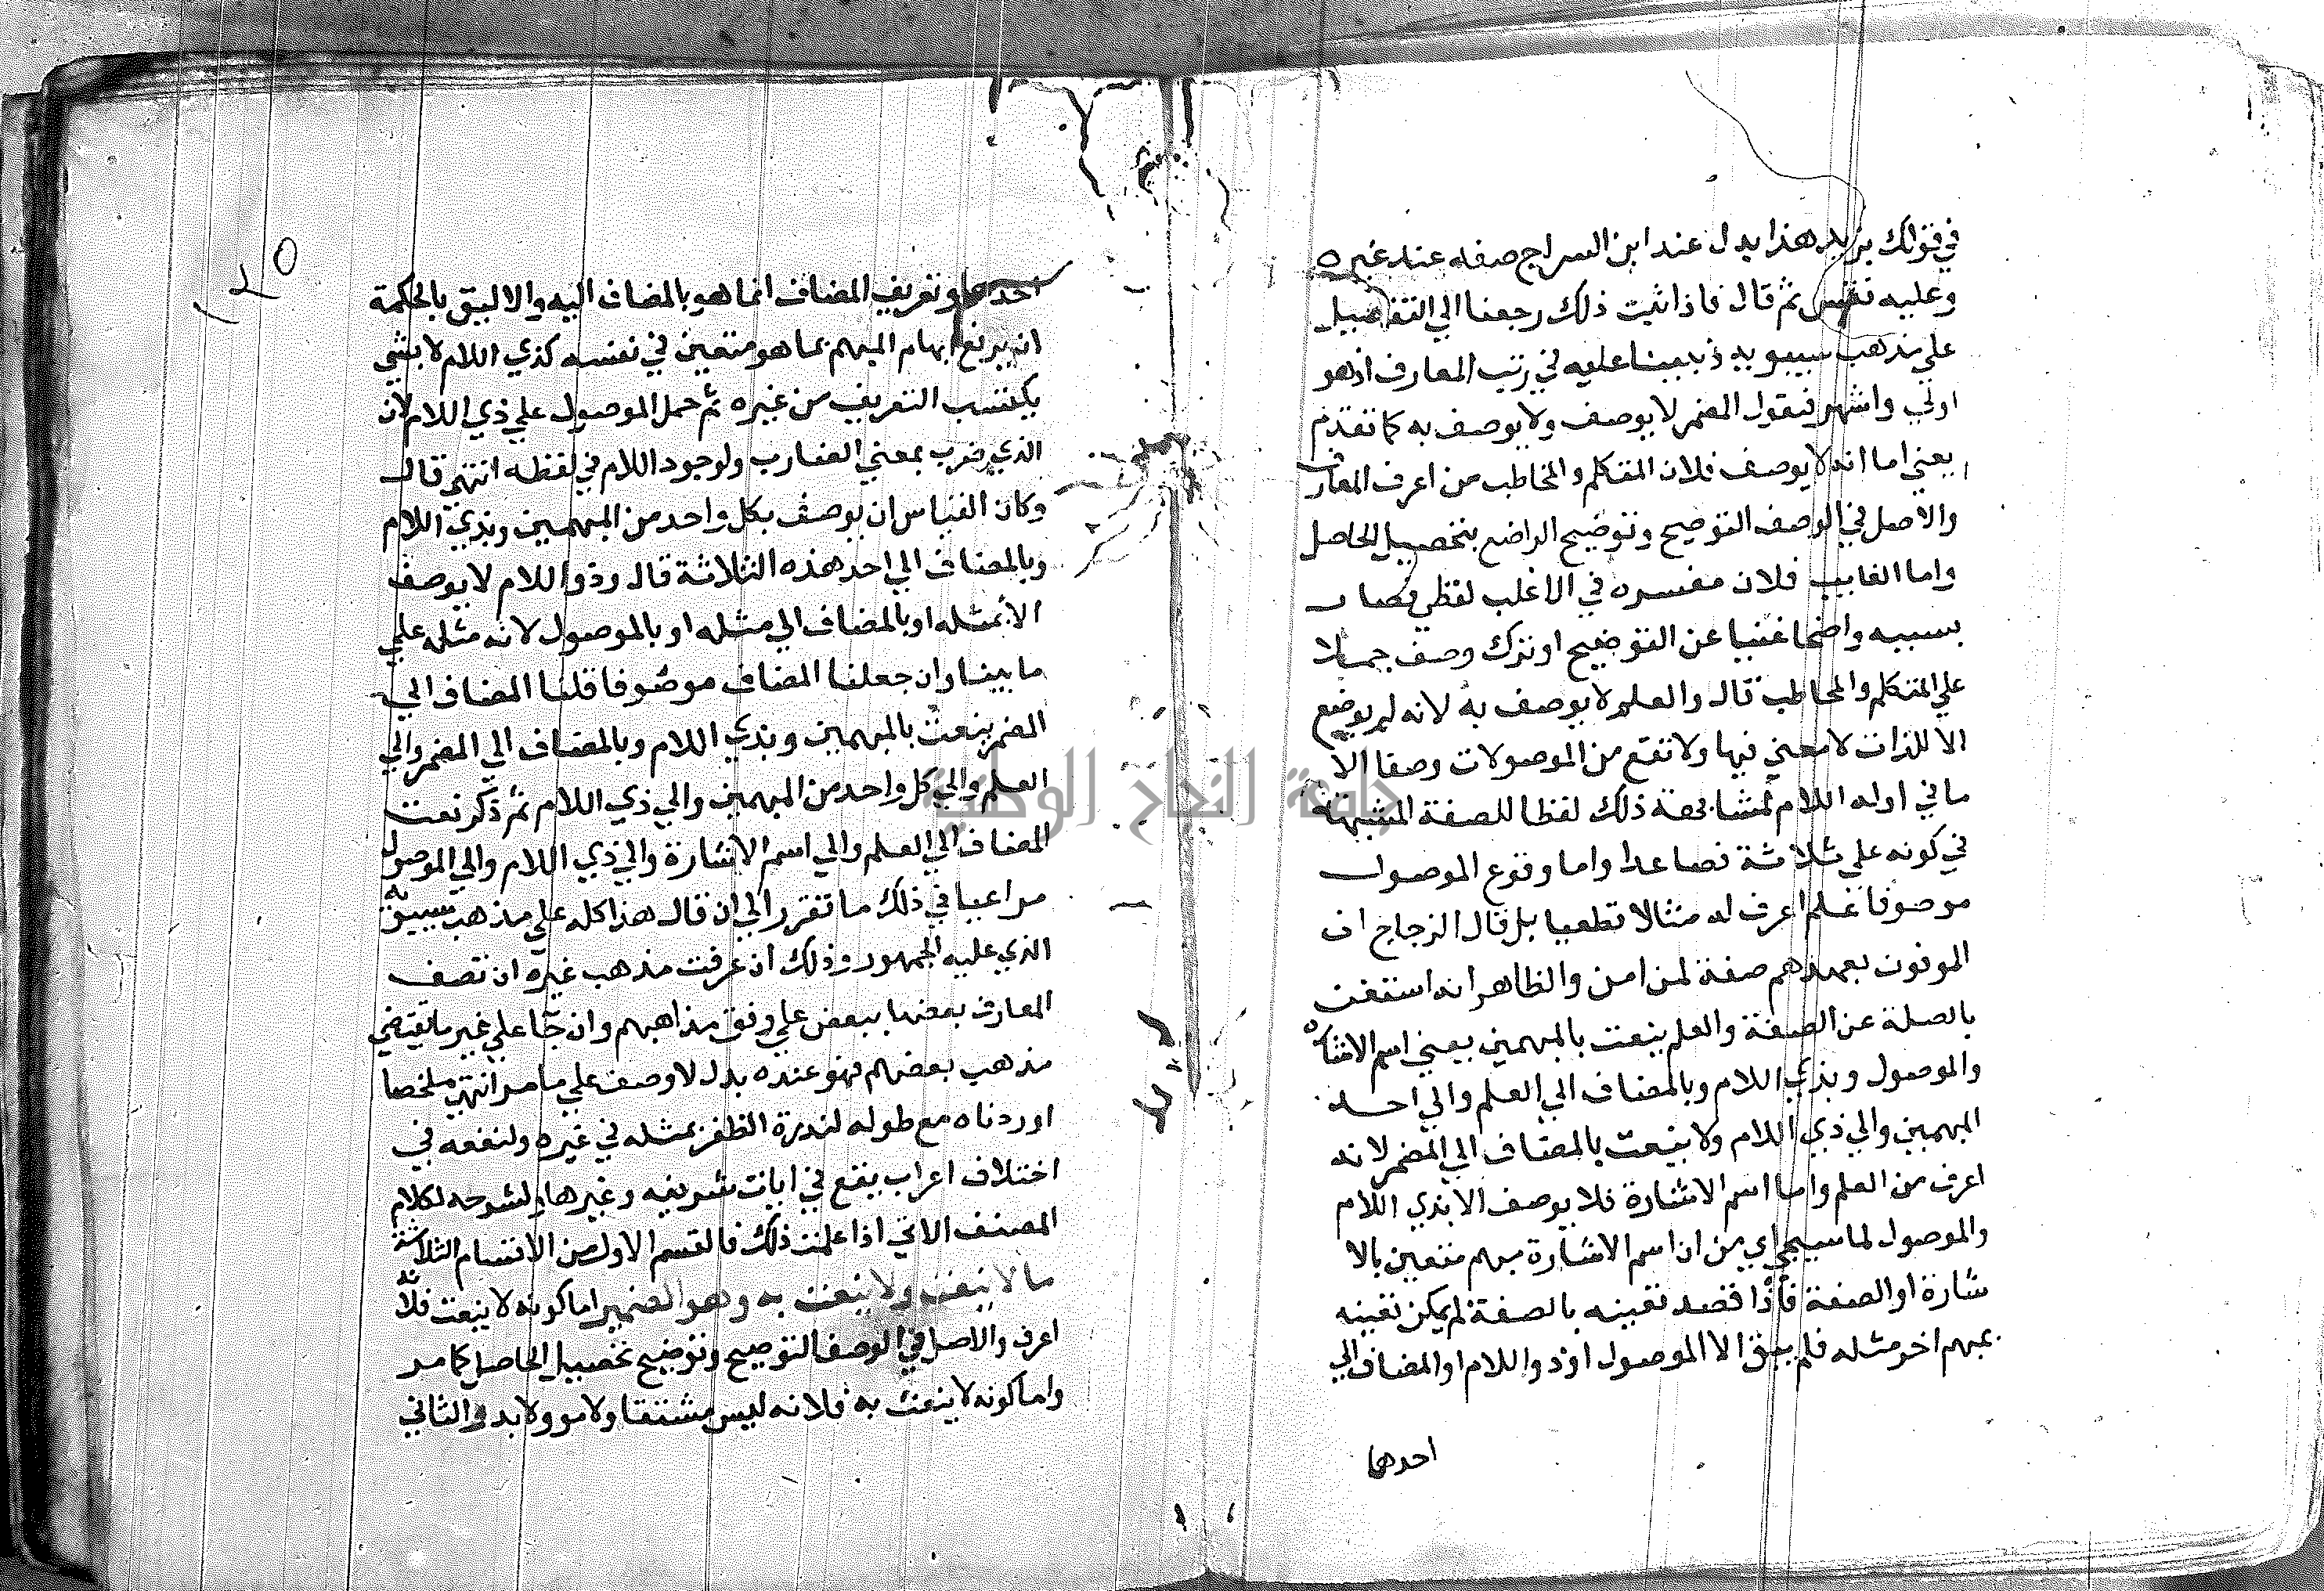 في قولك بزيد هذا بدل عند ابن السراج صفه عند غيره
وعليه فقس ثم قال فاذا ثبت ذلك رجعنا الي التفصيل
علي مذهب سيبويه اذ بنينا عليه في رتب المعارف اذ هو
اولي واشهر فنقول المضمر لا يوصف ولا يوصف به كما تقدم
يعني اما انه لا يوصف فلان المتكلم والمخاطب من اعرف المعارف
والاصل في الوصف التوضيح وتوضيح الواضح بتحصيل الحاصل
واما الغايب فلان مفسره في الاغلب لفظي فصار
بسببه واضحا غنيا عن التوضيح او ترك وصف حملا
علي المتكلم والمخاطب قال والعلم لا يوصف به لانه لم يوضع
الا للذات لا معني فيها ولا تقع من الموصولات وصفا الا
ما في اوله اللام لمشابهة ذلك لفظا للصفة المشبهة
في كونه علي ثلاثة فصاعدا واما وقوع الموصول
موصوفا فلم اعرف له مثالا قطعيا بل قال الزجاج ان
الموفون بعهدهم صفة لمن امن والظاهر انه استغنت
بالصلة عن الصفة والعلم ينعت بالمبهمين يعني اسم الاشاره
والموصول وبذي اللام وبالمضاف الي العلم والي احد
المبهمين والي ذي اللام ولا ينعت بالمضاف الي المضمر لانه
اعرف من العلم واما اسم الاشارة فلا يوصف الا بذي اللام
والموصول لما سيجي اي من ان اسم الاشارة مبهم متعين بالا
شارة او الصفة فاذا قصد تعينه بالصفة لم يكن تعينه
بمبهم اخر مثله فلم يبق الا الموصول او ذو اللام او المضاف الي
احدهما
١٢٥
احدهما وتعريف المضاف انما هو بالمضاف اليه والاليق بالحكمة
ان يرفع ابهام المبهم بما هو متعين في نفسه كذي اللام لا بشي
يكتسب التعريف من غيره ثم حمل الموصول علي ذي اللام لان
الذي ضرب بمعني الضارب ولوجود اللام في لفظه انتهي قال
وكان القياس ان يوصف بكل واحد من المبهمين وبذي اللام
وبالمضاف الي احد هذه الثلاثة قال وذو اللام لا يوصف
الا بمثله او بالمضاف الي مثله او بالموصول لانه مثله علي
ما بينا وان جعلنا المضاف موصوفا قلنا المضاف الي
المضمر ينعت بالمبهمين وبذي اللام وبالمضاف الي المضمر والي
العلم والي كل واحد من المبهمين والي ذي اللام ثم ذكر نعت
المضاف الي العلم والي اسم الاشارة والي ذي اللام والي الموصول
مراعيا في ذلك ما تقرر الي ان قال هذا كله علي مذهب سيبويه
الذي عليه الجمهور وذلك ان عرفت مذهب غيره ان تصف
المعارف بعضها ببعض علي وفق مذاهبهم وان جا علي غير ما يقتضي
مذهب بعضهم فهو عنده بدل لا وصف علي ما مر انتهي ملخصا
اوردناه مع طوله لندرة الظفر بمثله في غيره ولنفعه في
اختلاف اعراب يقع في ايات شريفه وغيرها ولشرحه لكلام
المصنف الاتي اذا علمت ذلك فالقسم الاول من الاقسام الثلاثة
ما لا ينعت ولا ينعت به وهو الضمير اما كونه لا ينعت فلانه
اعرف والاصل في الوصف التوضيح وتوضيح تحصيل الحاصل كما مر
واما كونه لا ينعت به فلانه ليس مشتقا ولا موولا به والثاني
جامعة النجاح الوطنية